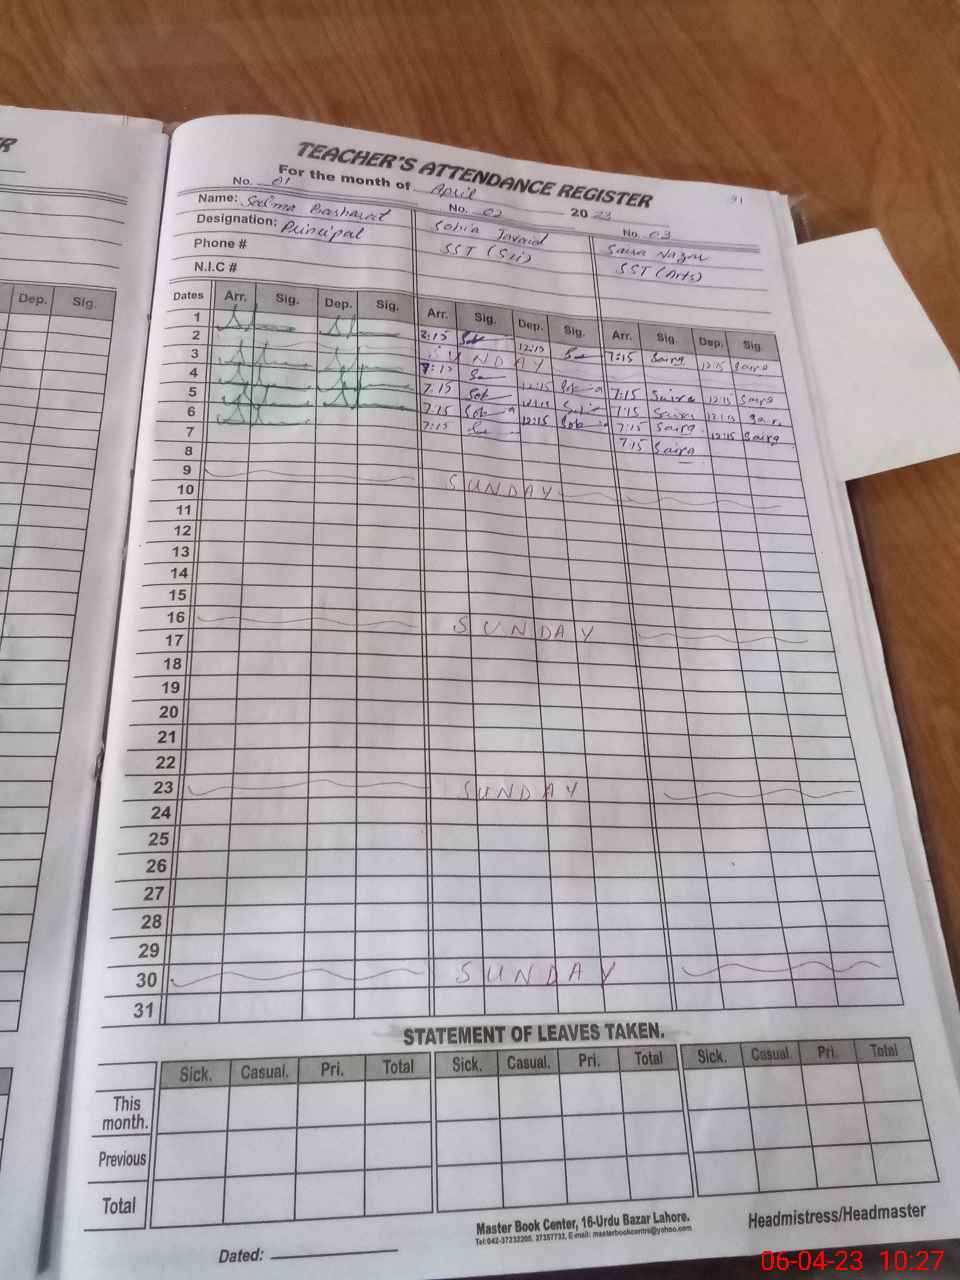 R
TEACHER'S ATTENDANCE REGISTER
For the month of April 2023
No. 01 No. 02 No. 03
Name: Salma Basharat Sobia Javaid Saira Nazar
Designation: Principal SST (Sci) SST (Arts)
Phone #
N.I.C #
Dep. Sig.
Dates Arr. Sig. Dep. Sig. Arr. Sig. Dep. Sig. Arr. Sig. Dep. Sig.
1 7:15 12:15 7:15 Saira 12:15 Saira
2 SUNDAY
3 7:15 12:15 7:15 Saira 12:15 Saira
4 7:15 12:15 7:15 Saira 12:15 Saira
5 7:15 12:15 7:15 Saira 12:15 Saira
6 7:15 7:15 Saira
7
8
9 SUNDAY
10
11
12
13
14
15
16 SUNDAY
17
18
19
20
21
22
23 SUNDAY
24
25
26
27
28
29
30 SUNDAY
31
STATEMENT OF LEAVES TAKEN.
Sick. Casual. Pri. Total Sick. Casual. Pri. Total Sick. Casual. Pri. Total
This month.
Previous
Total
Master Book Center, 16-Urdu Bazar Lahore.
Tel:042-37232200, 37357733, E-mail: masterbookcentre@yahoo.com
Headmistress/Headmaster
Dated:
06-04-23 10:27